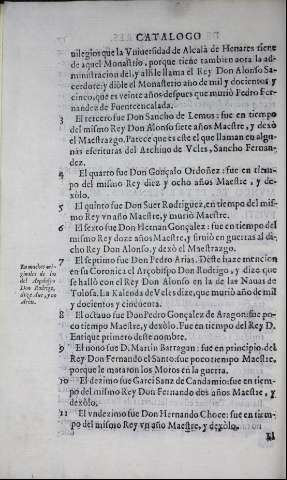 CATALOGO
uilegios que la Vniuersidad de Alcalà de Henares tiene
de aquel Monastrio, porque tiene tambien aora la ad-
ministracion del, y alli le llama el Rey Don Alonso Sa-
cerdote: y diòle el Monasterio año de mil y docientos y
cinco, que es veinte años despues que murió Pedro Fer-
nandez de Fuenteencalada.
3 El tercero fue Don Sancho de Lemus: fue en tiempo
del mismo Rey Don Alonso siete años Maestre, y dexò
el Maestrazgo. Parece que es este el que llaman en algu-
nas escrituras del Archiuo de Vcles, Sancho Fernan-
dez.
4 El quarto fue Don Gonçalo Ordoñez: fue en tiem-
po del mismo Rey diez y ocho años Maestre, y de-
xòlo.
5 El quinto fue Don Suer Rodriguez, en tiempo del mis-
mo Rey vn año Maestre, y murio Maestre.
6 El sexto fue Don Hernan Gonçalez: fue en tiempo del
mismo Rey doze años Maestre, y siruiò en guerras al di-
cho Rey Don Alonso, y dexò el Maestrazgo.
7 El septimo fue Don Pedro Arias. Deste haze mencion
en su Coronica el Arçobispo Don Rodrigo, y dize que
se hallò con el Rey Don Alonso en la de las Nauas de
Tolosa. La Kalenda de Vcles dize, que murio año de mil
y docientos y cincuenta.
En muchos ori-
ginales de los
del Arçobispo
Don Rodrigo,
dize
8 El octauo fue Don Pedro Gonçalez de Aragon: fue po-
co tiempo Maestre, y dexòlo. Fue en tiempo del Rey D.
Enrique primero deste nombre.
9 El nono fue D. Martin Barragan: fue en principio del
Rey Don Fernando el Santo: fue poco tiempo Maestre,
porque le mataron los Moros en la guerra.
10 El dezimo fue Garci Sanz de Candamio: fue en tiem-
po del mismo Rey Don Fernando dos años Maestre, y
dexòlo.
11 El vndezimo fue Don Hernando Choce: fue en tiem-
po del mismo Rey vn año Maestre, y dexòlo.
El